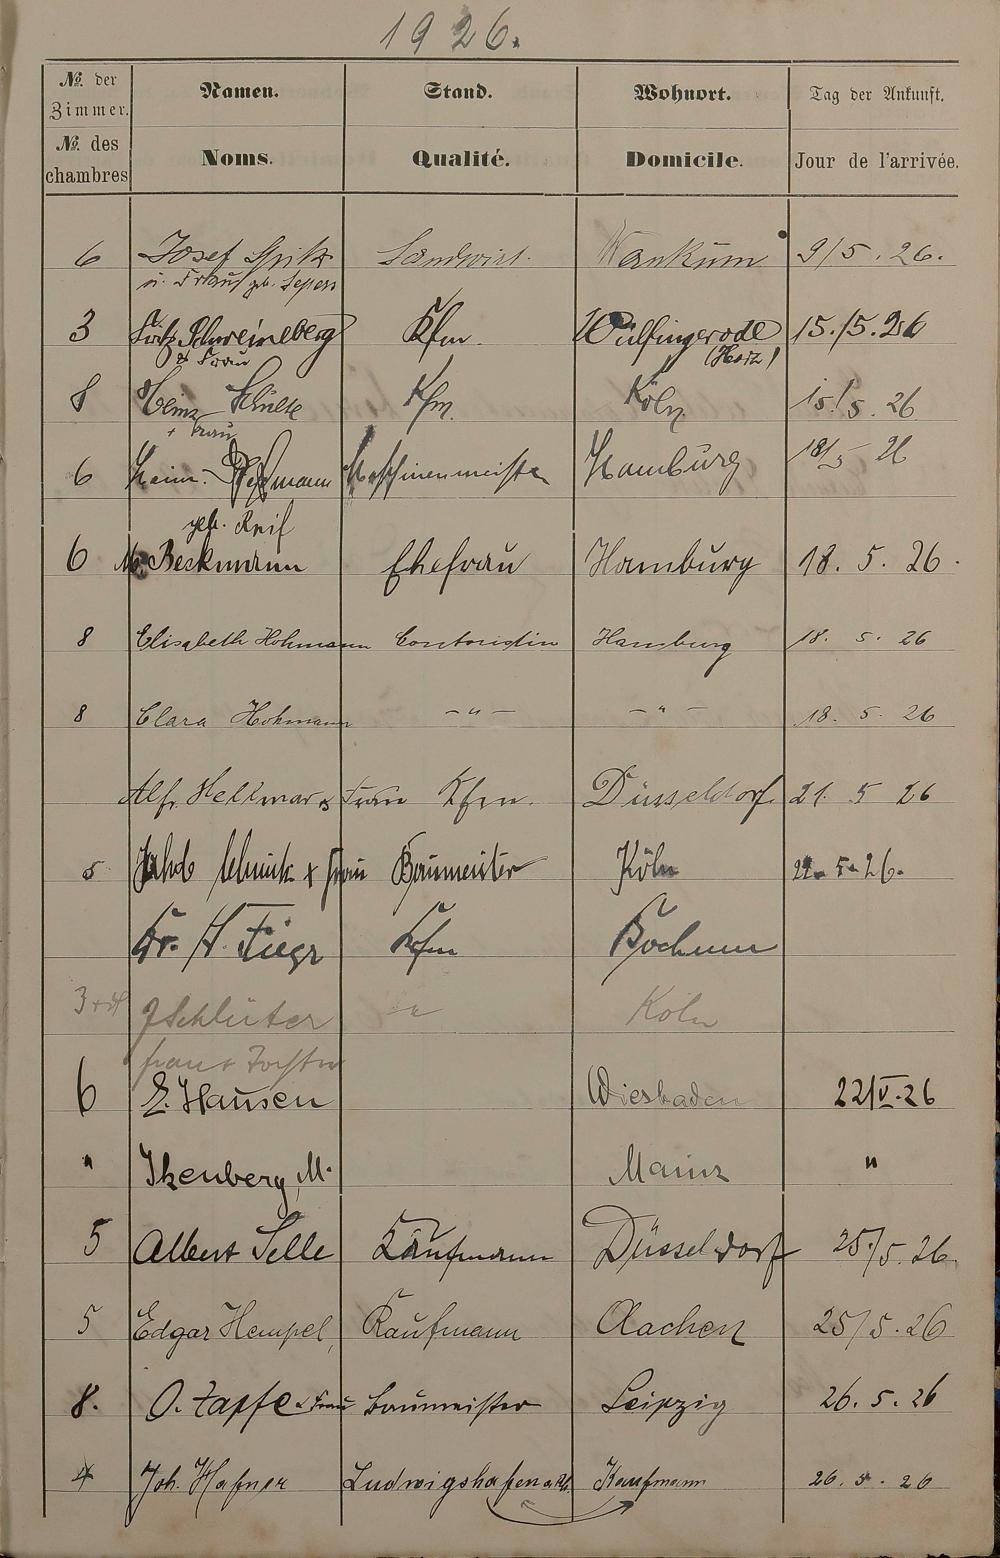 1926.
No. der Zimmer. Namen. Stand. Wohnort. Tag der Ankunft.
No. des chambres Noms. Qualité. Domicile. Jour de l'arrivée.
6 Josef Landwirt. Wankum 9/5.26.
u. Frau geb.
3 Fritz Schweineberg Kfm. Wülfingerode 15./5.26
& Frau (Harz)
8 Heinz Schulte Kfm. Köln 15./5.26
+ Frau
6 Heinr. Maschinenmeister Hamburg 18/5 26
geb. Reif
6 Beckmann Ehefrau Hamburg 18. 5. 26.
8 Elisabeth Hohmann Contoristin Hamburg 18. 5. 26
8 Clara Hohmann -"- -"- 18. 5. 26
Alfr. Hellmar & Frau Kfm. Düsseldorf 21. 5 26
5 + Frau Baumeister Köln 5-26.
H. Kfm Bochum
3+4 J Schlüter " Köln
frau + Tochter
6 E. Hausen Wiesbaden 22/V.26
" Ikenberg, M. Mainz "
5 Albert Selle Kaufmann Düsseldorf 25./5.26.
5 Edgar Hempel, Kaufmann Aachen 25/5.26
8. O. Zapfe & Frau Baumeister Leipzig 26.5.26
4 Joh. Hafner Ludwigshafen a/Rh. Kaufmann 26.5.26